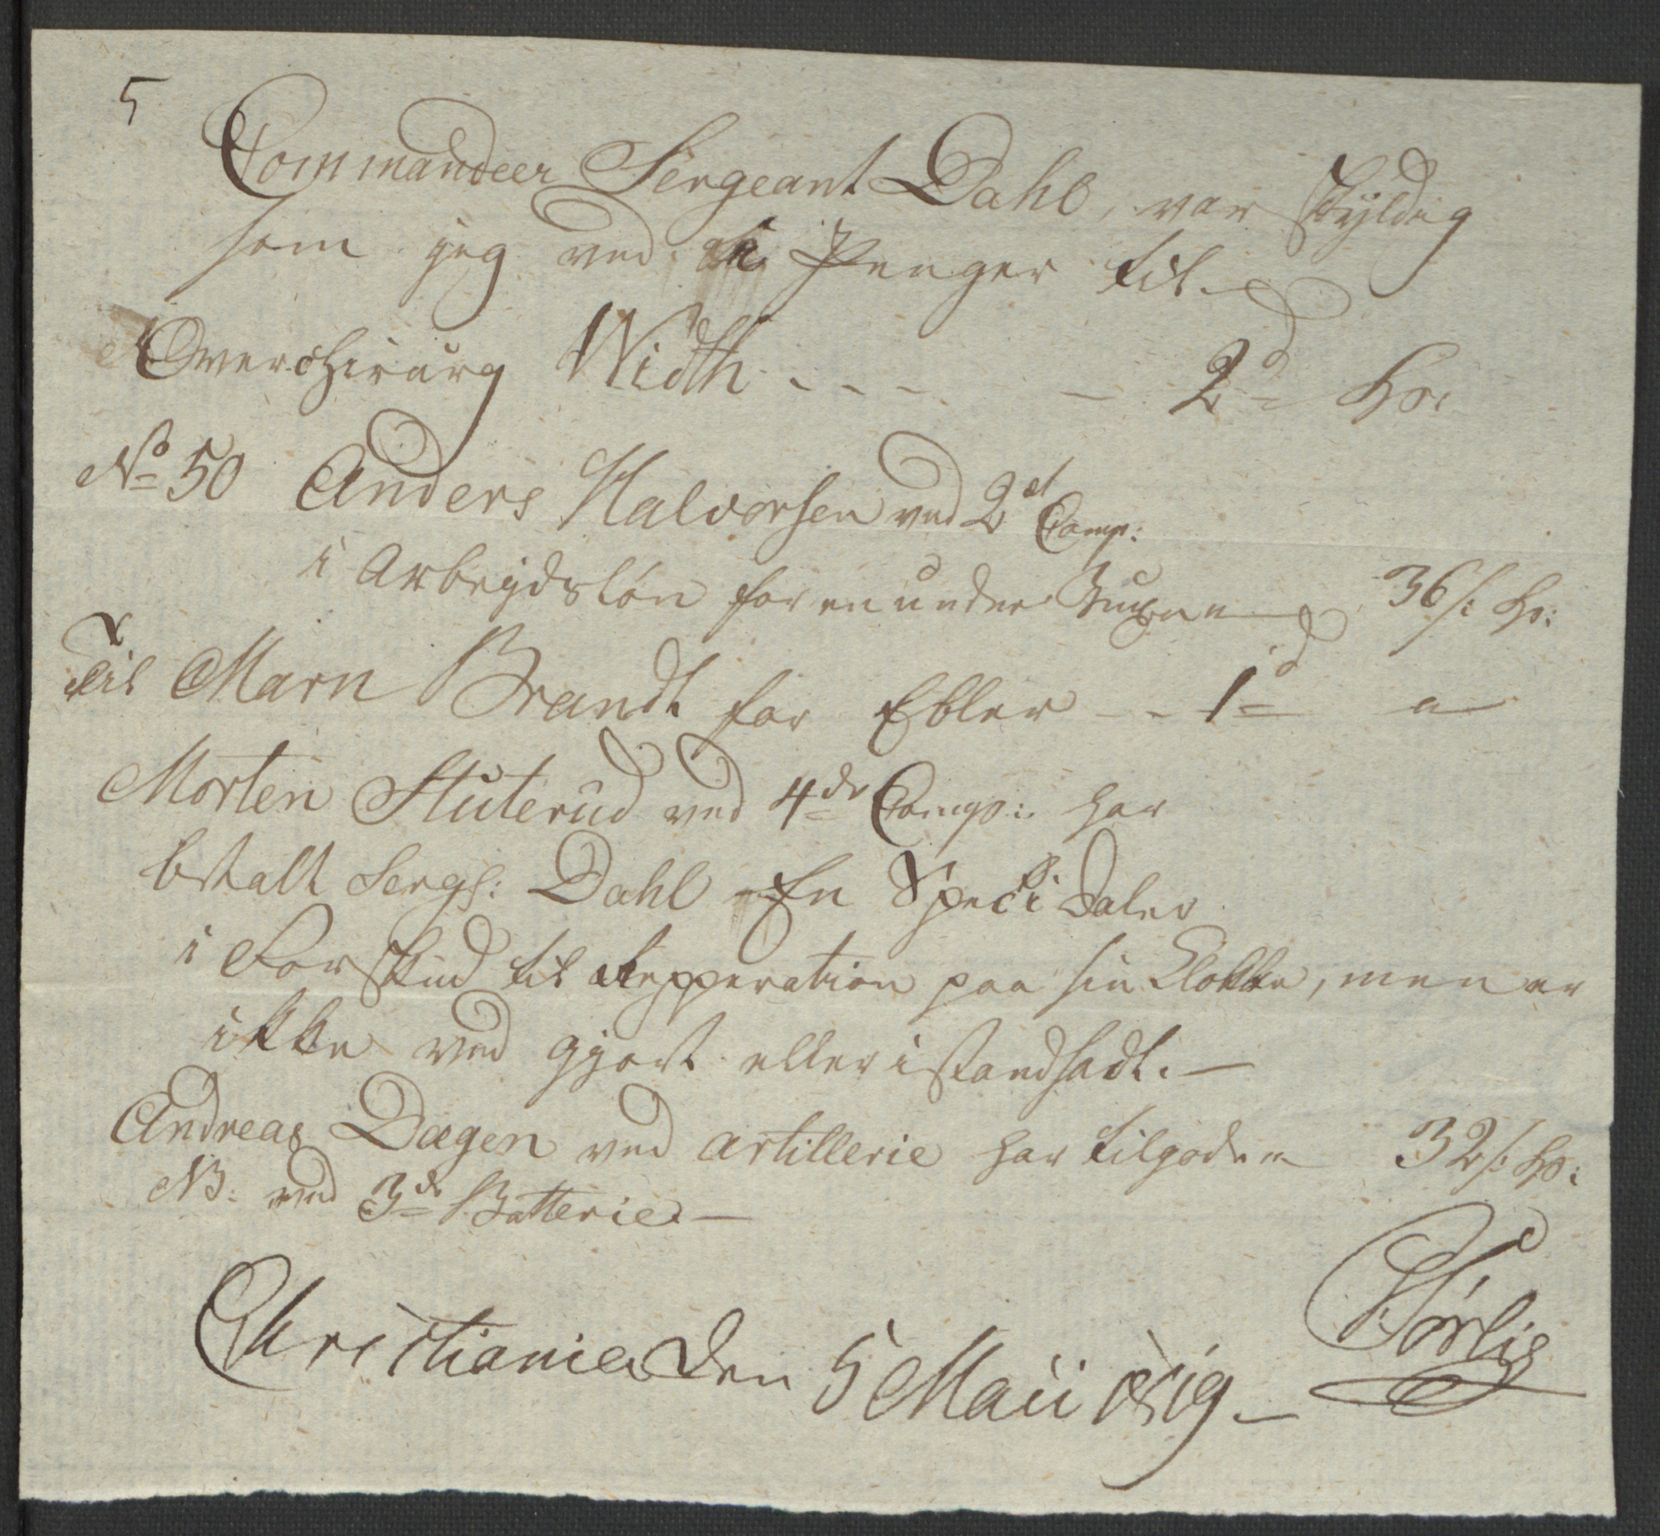 5
Commandeer Sergeant Dahl, var skyldig
som jeg ved i Penger til
Overchirurg Width - - - - 2d
No 50 Anders Halvorsen ved 2det Comp:
i Arbeydsløn for en under Buxe 36 s:
Til Marn Brandt for Ebler - - 1d "
Morten Stuterud ved 4de Comp: har
btalt Sergt: Dahl En Speci Daler
i Forskud til Repperation paa sin Klokke, men er
ikke ved gjort eller istandsadt. -
Andreas Dagen ved artillerie har tilgode 32 s:
NB: ved 3de Batterie. -
Christiania den 5 Maii 1819 -